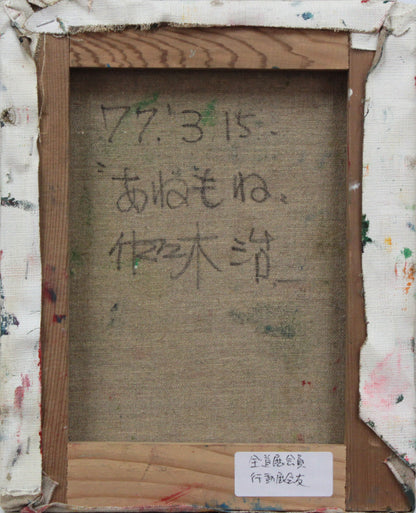 77.'3 15.
"あねもね。
佐々木 治
全道展会員
行動展会友